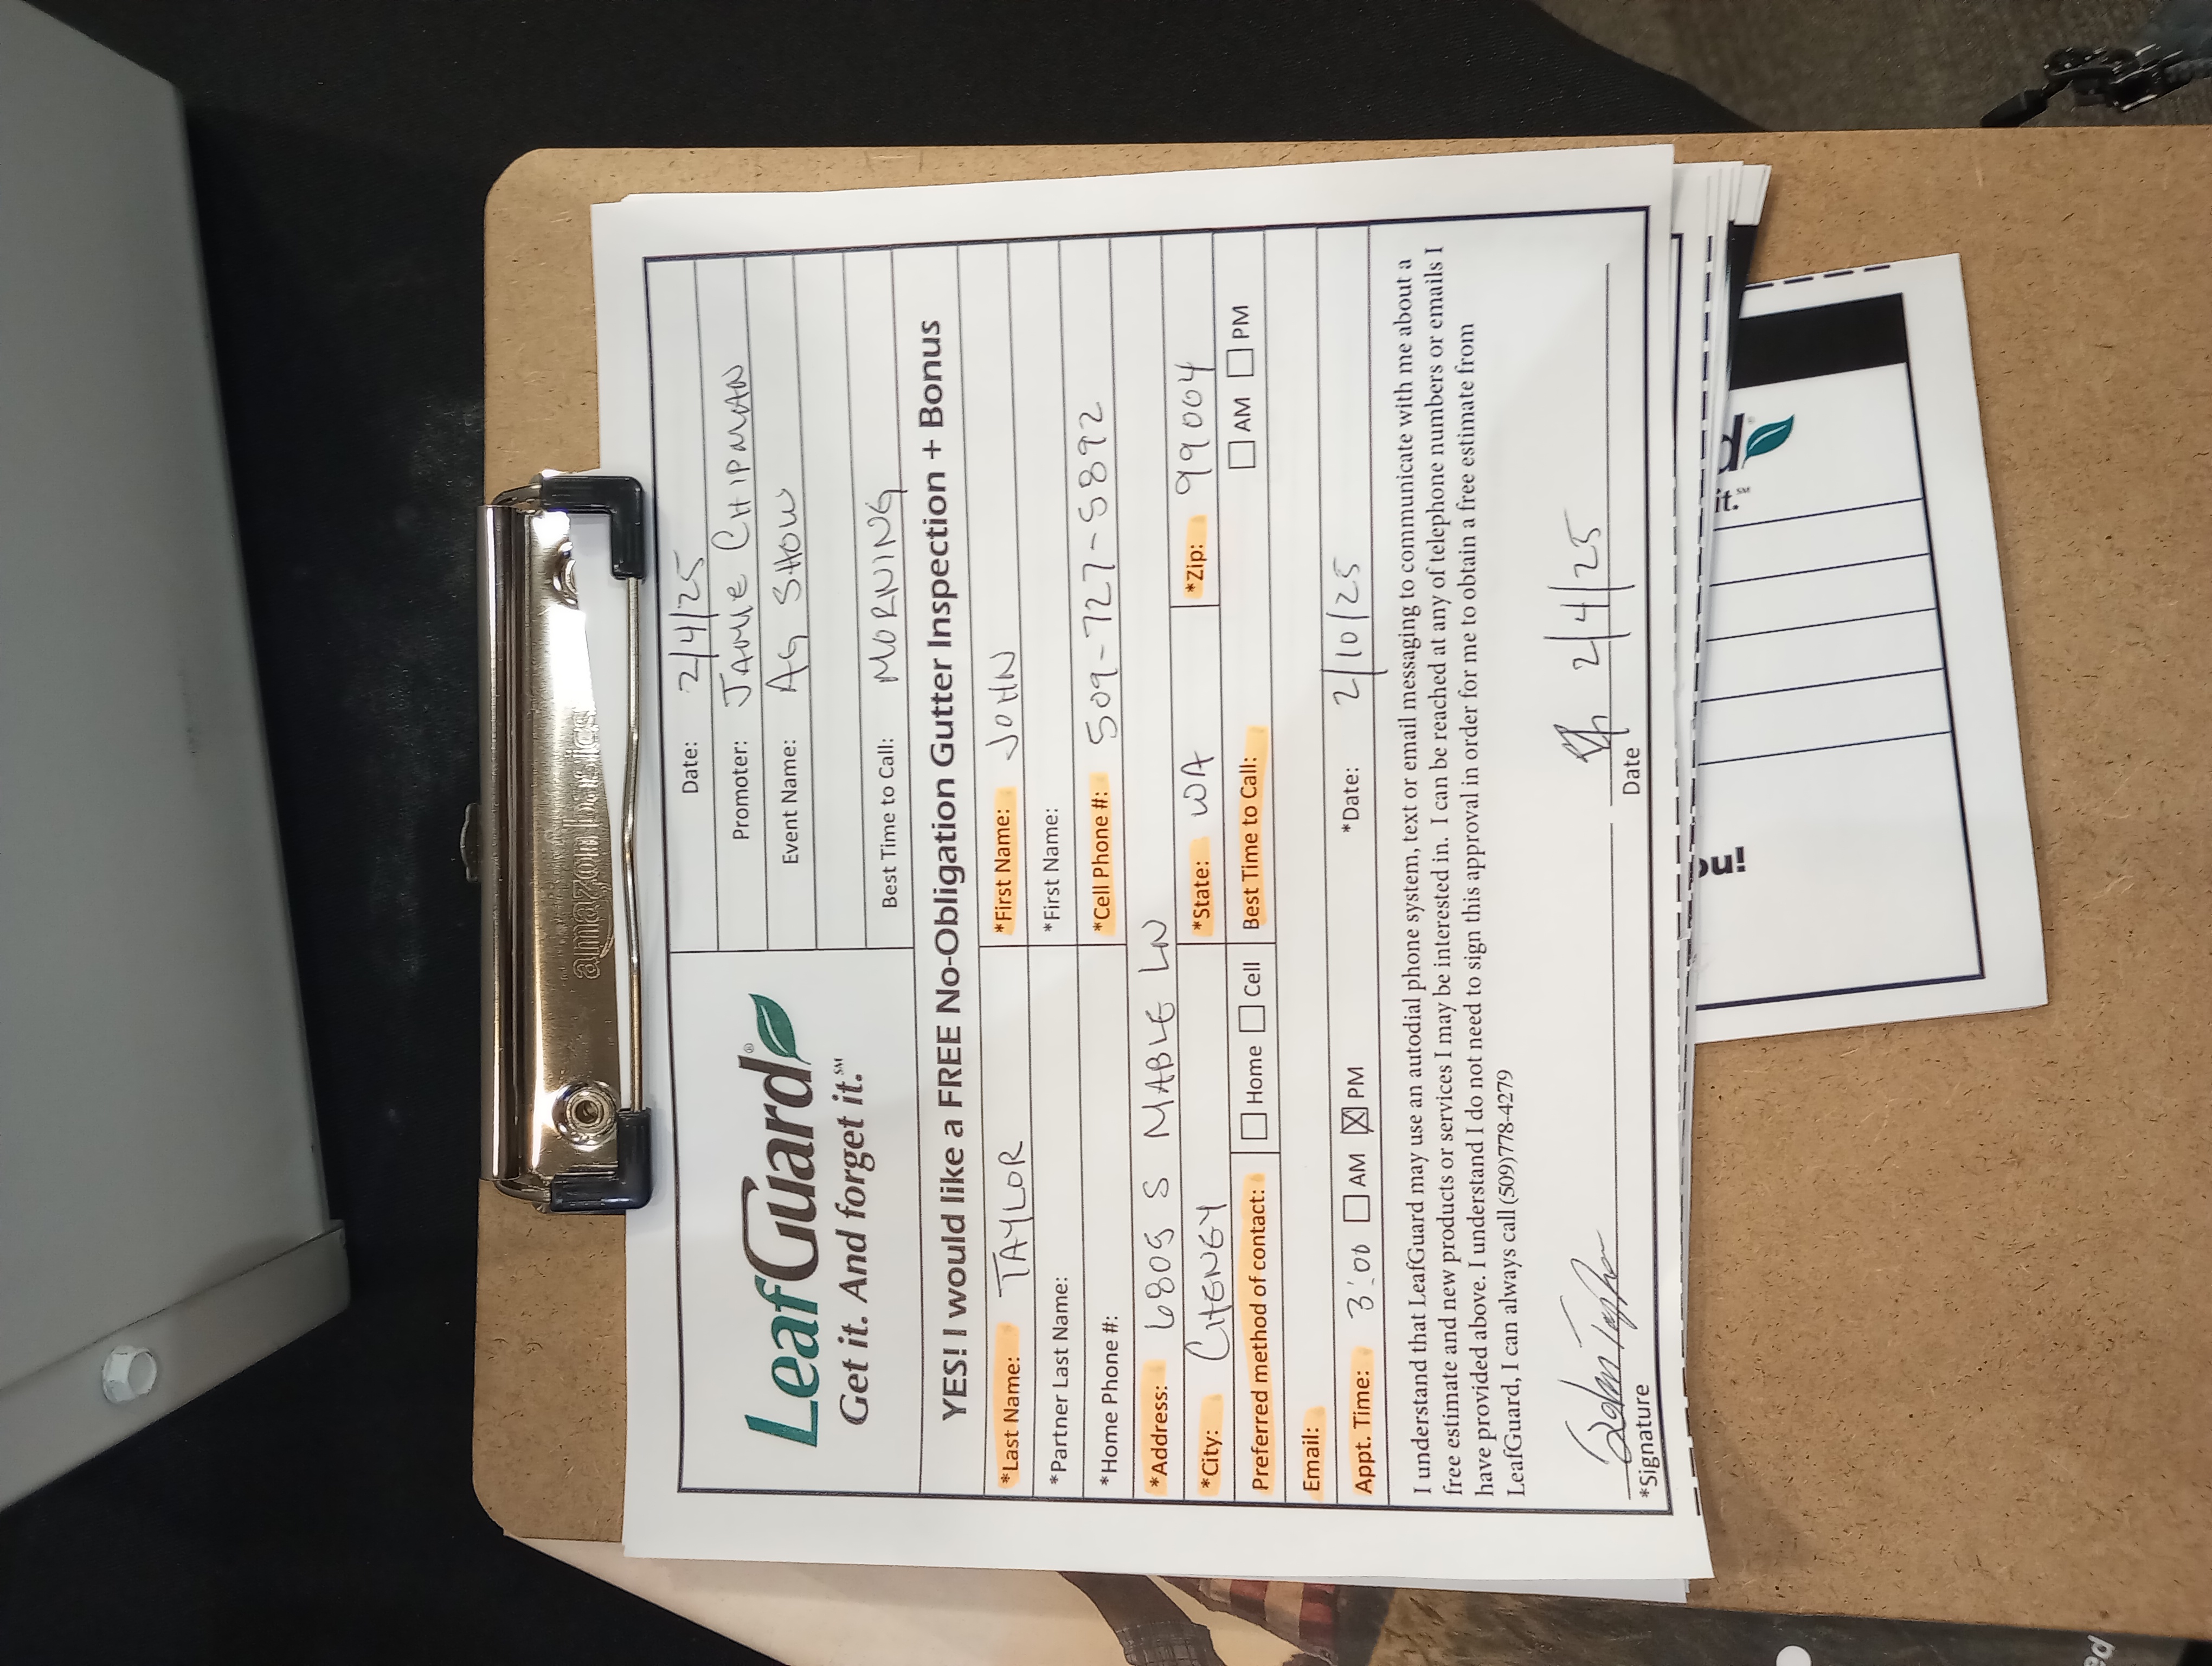 amazon basics
Date: 2/4/25
Promoter: JAMIE CHIPMAN
LeafGuard®
Get it. And forget it.℠
Event Name: AG SHOW
Best Time to Call: MORNING
YES! I would like a FREE No-Obligation Gutter Inspection + Bonus
*Last Name: TAYLOR *First Name: JOHN
*Partner Last Name: *First Name:
*Home Phone #: *Cell Phone #: 509-727-5892
*Address: 6805 S MABLE LN
*City: CHENEY *State: WA *Zip: 99004
Preferred method of contact: Home Cell Best Time to Call: AM PM
Email:
Appt. Time: 3:00 AM PM *Date: 2/10/25
I understand that LeafGuard may use an autodial phone system, text or email messaging to communicate with me about a
free estimate and new products or services I may be interested in. I can be reached at any of telephone numbers or emails I
have provided above. I understand I do not need to sign this approval in order for me to obtain a free estimate from
LeafGuard, I can always call (509)778-4279
John Taylor 2/4/25
*Signature Date
ou!
it.℠
d®
ed